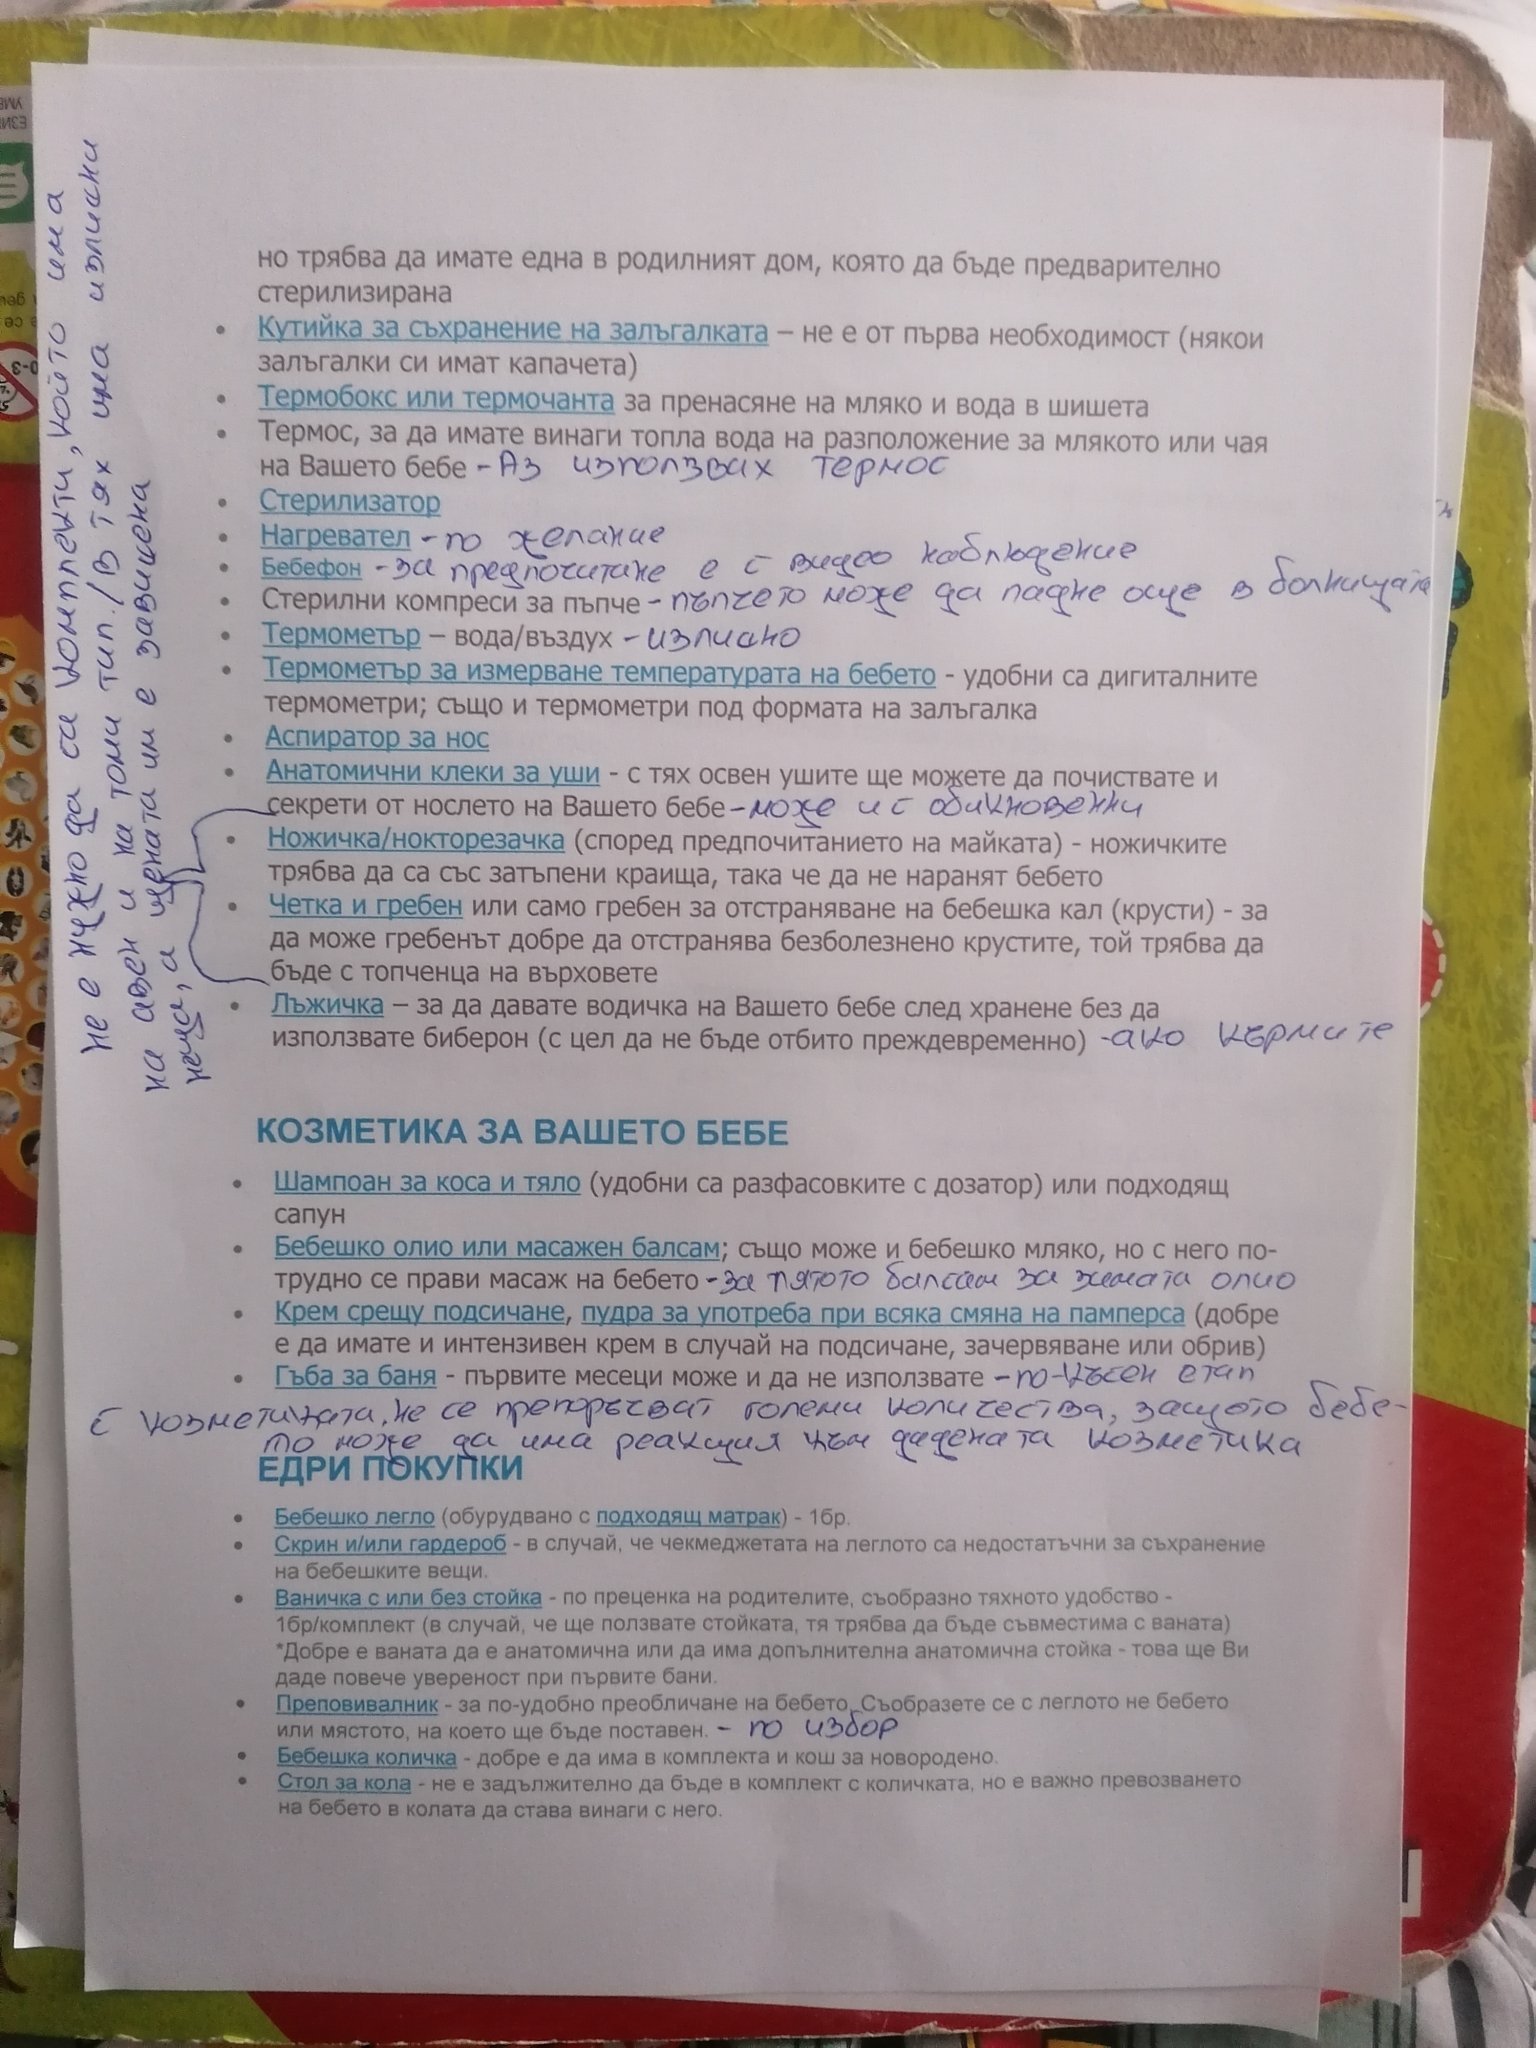 но трябва да имате една в родилният дом, която да бъде предварително
стерилизирана
• Кутийка за съхранение на залъгалката – не е от първа необходимост (някои
залъгалки си имат капачета)
• Термобокс или термочанта за пренасяне на мляко и вода в шишета
• Термос, за да имате винаги топла вода на разположение за млякото или чая
на Вашето бебе - Аз използвах термос
• Стерилизатор
• Нагревател - по желание
• Бебефон - за предпочитане е с видео наблюдение
• Стерилни компреси за пъпче - пъпчето може да падне още в болницата
• Термометър – вода/въздух - излишно
• Термометър за измерване температурата на бебето - удобни са дигиталните
термометри; също и термометри под формата на залъгалка
• Аспиратор за нос
• Анатомични клеки за уши - с тях освен ушите ще можете да почиствате и
секрети от нослето на Вашето бебе - може и с обикновенни
• Ножичка/нокторезачка (според предпочитанието на майката) - ножичките
трябва да са със затъпени краища, така че да не наранят бебето
• Четка и гребен или само гребен за отстраняване на бебешка кал (крусти) - за
да може гребенът добре да отстранява безболезнено крустите, той трябва да
бъде с топченца на върховете
• Лъжичка – за да давате водичка на Вашето бебе след хранене без да
използвате биберон (с цел да не бъде отбито преждевременно) - ако кърмите
не е нужно да са комплекти, който има
на авен и на томи тип. / В тях има излишни
неща, а цената им е завишена
КОЗМЕТИКА ЗА ВАШЕТО БЕБЕ
• Шампоан за коса и тяло (удобни са разфасовките с дозатор) или подходящ
сапун
• Бебешко олио или масажен балсам; също може и бебешко мляко, но с него по-
трудно се прави масаж на бебето - за лятото балсам за зимата олио
• Крем срещу подсичане, пудра за употреба при всяка смяна на памперса (добре
е да имате и интензивен крем в случай на подсичане, зачервяване или обрив)
• Гъба за баня - първите месеци може и да не използвате - по-късен етап
С козметиката, не се препоръчват големи количества, защото бебе-
то може да има реакция към дадената козметика
ЕДРИ ПОКУПКИ
• Бебешко легло (обурудвано с подходящ матрак) - 1бр.
• Скрин и/или гардероб - в случай, че чекмеджетата на леглото са недостатъчни за съхранение
на бебешките вещи.
• Ваничка с или без стойка - по преценка на родителите, съобразно тяхното удобство -
1бр/комплект (в случай, че ще ползвате стойката, тя трябва да бъде съвместима с ваната)
*Добре е ваната да е анатомична или да има допълнителна анатомична стойка - това ще Ви
даде повече увереност при първите бани.
• Преповивалник - за по-удобно преобличане на бебето. Съобразете се с леглото не бебето
или мястото, на което ще бъде поставен. - по избор
• Бебешка количка - добре е да има в комплекта и кош за новородено.
• Стол за кола - не е задължително да бъде в комплект с количката, но е важно превозването
на бебето в колата да става винаги с него.